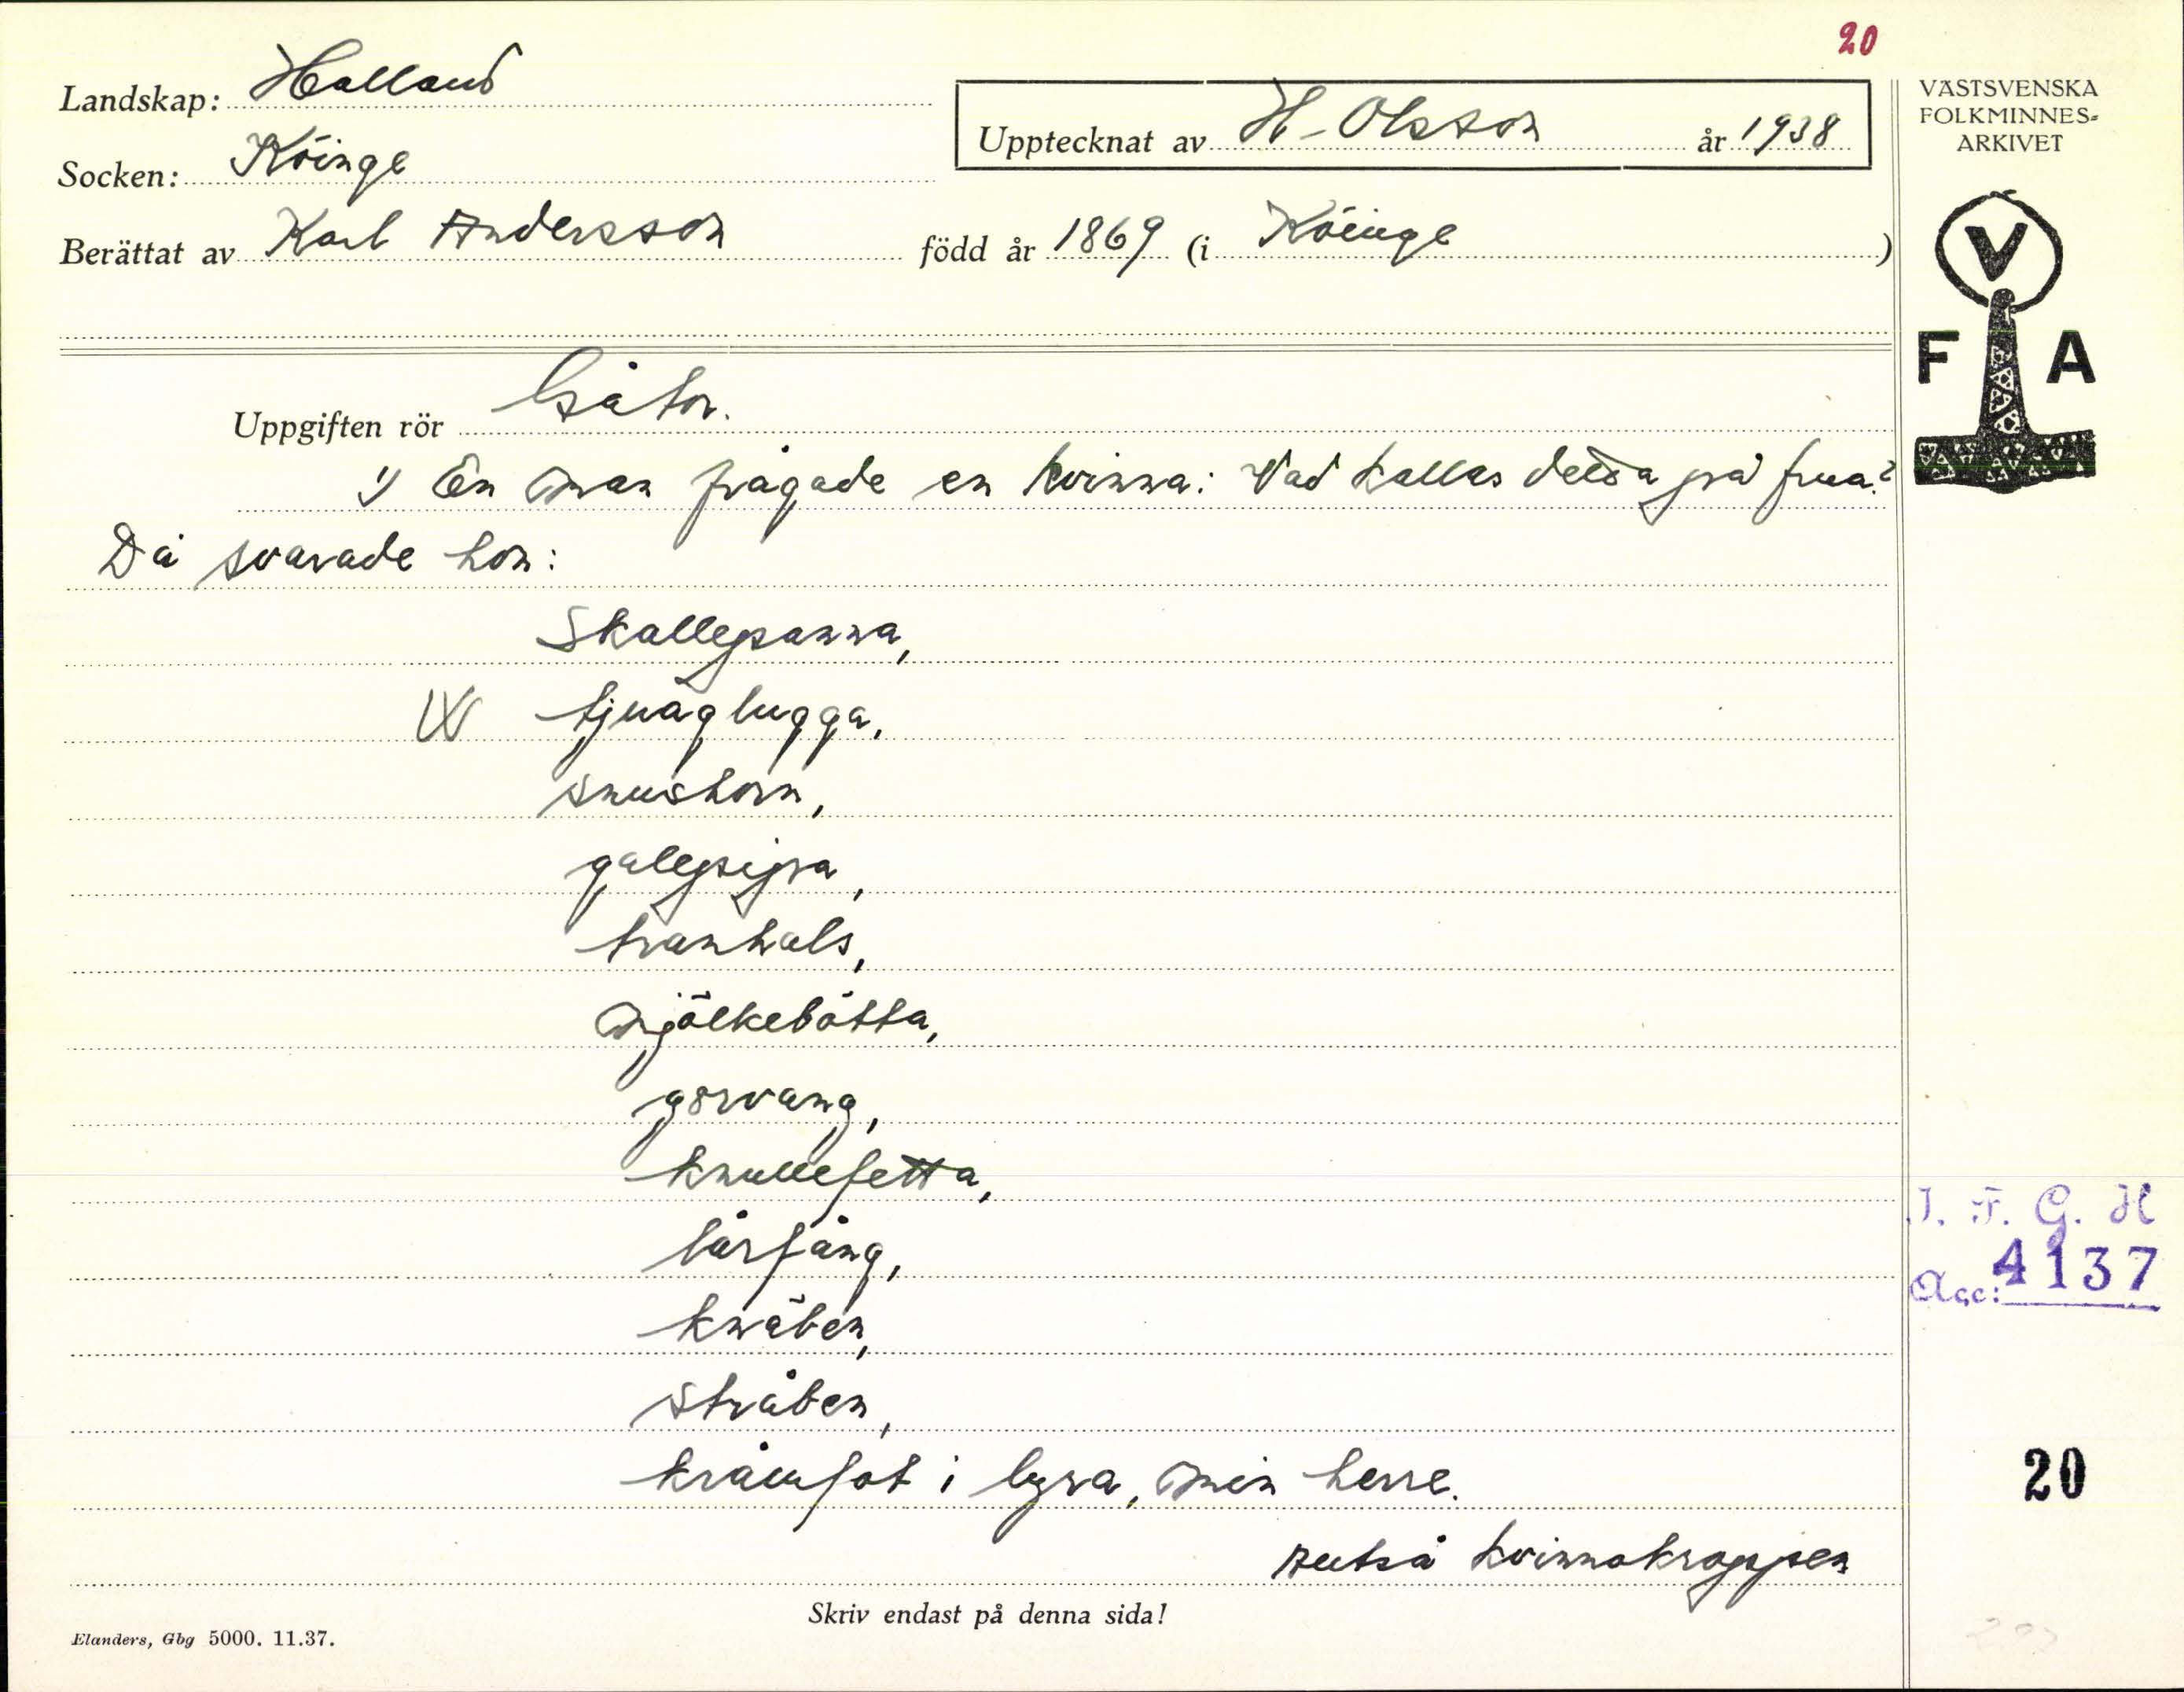 20
Landskap: Halland
Upptecknat av H. Olsson år 1938
Socken: Köinge
Berättat av Karl Andersson född år 1869 (i Köinge)
VÄSTSVENSKA
FOLKMINNES-
ARKIVET
V
F A
Uppgiften rör Gåtor.
1) En man frågade en kvinna: Vad kallas detta på frua?
Då svarade hon:
Skallepanna,
W tjuaglugga,
snushorn,
galepipa,
tranhals,
mjölkebötta,
gorvang,
knullefetta,
lårfång,
knäben,
stråben,
kråmfot i lyra, min herre.
Alltså kvinnokroppen
I. F. G. H
Acc: 4137
20
Skriv endast på denna sida!
Elanders, Gbg 5000. 11.37.